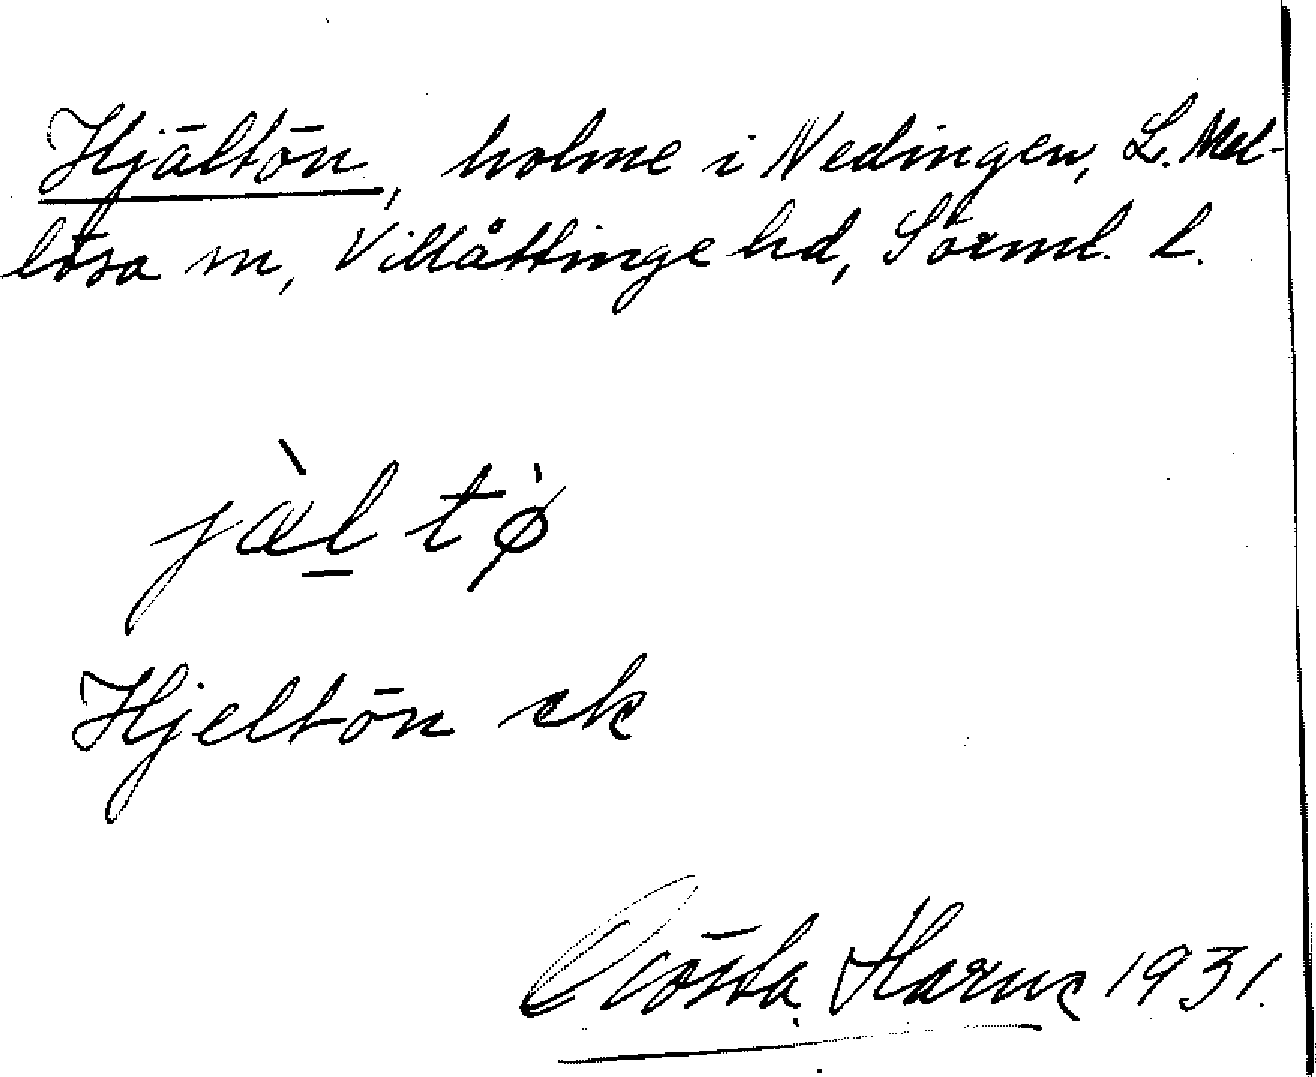 Hjältön, holme i Nedingen, L. Mel-
lösa sn, Villåttinge hd, Sörml. l.
jæ̀l tø̀
Hjeltön ek
Gösta Harne 1931.